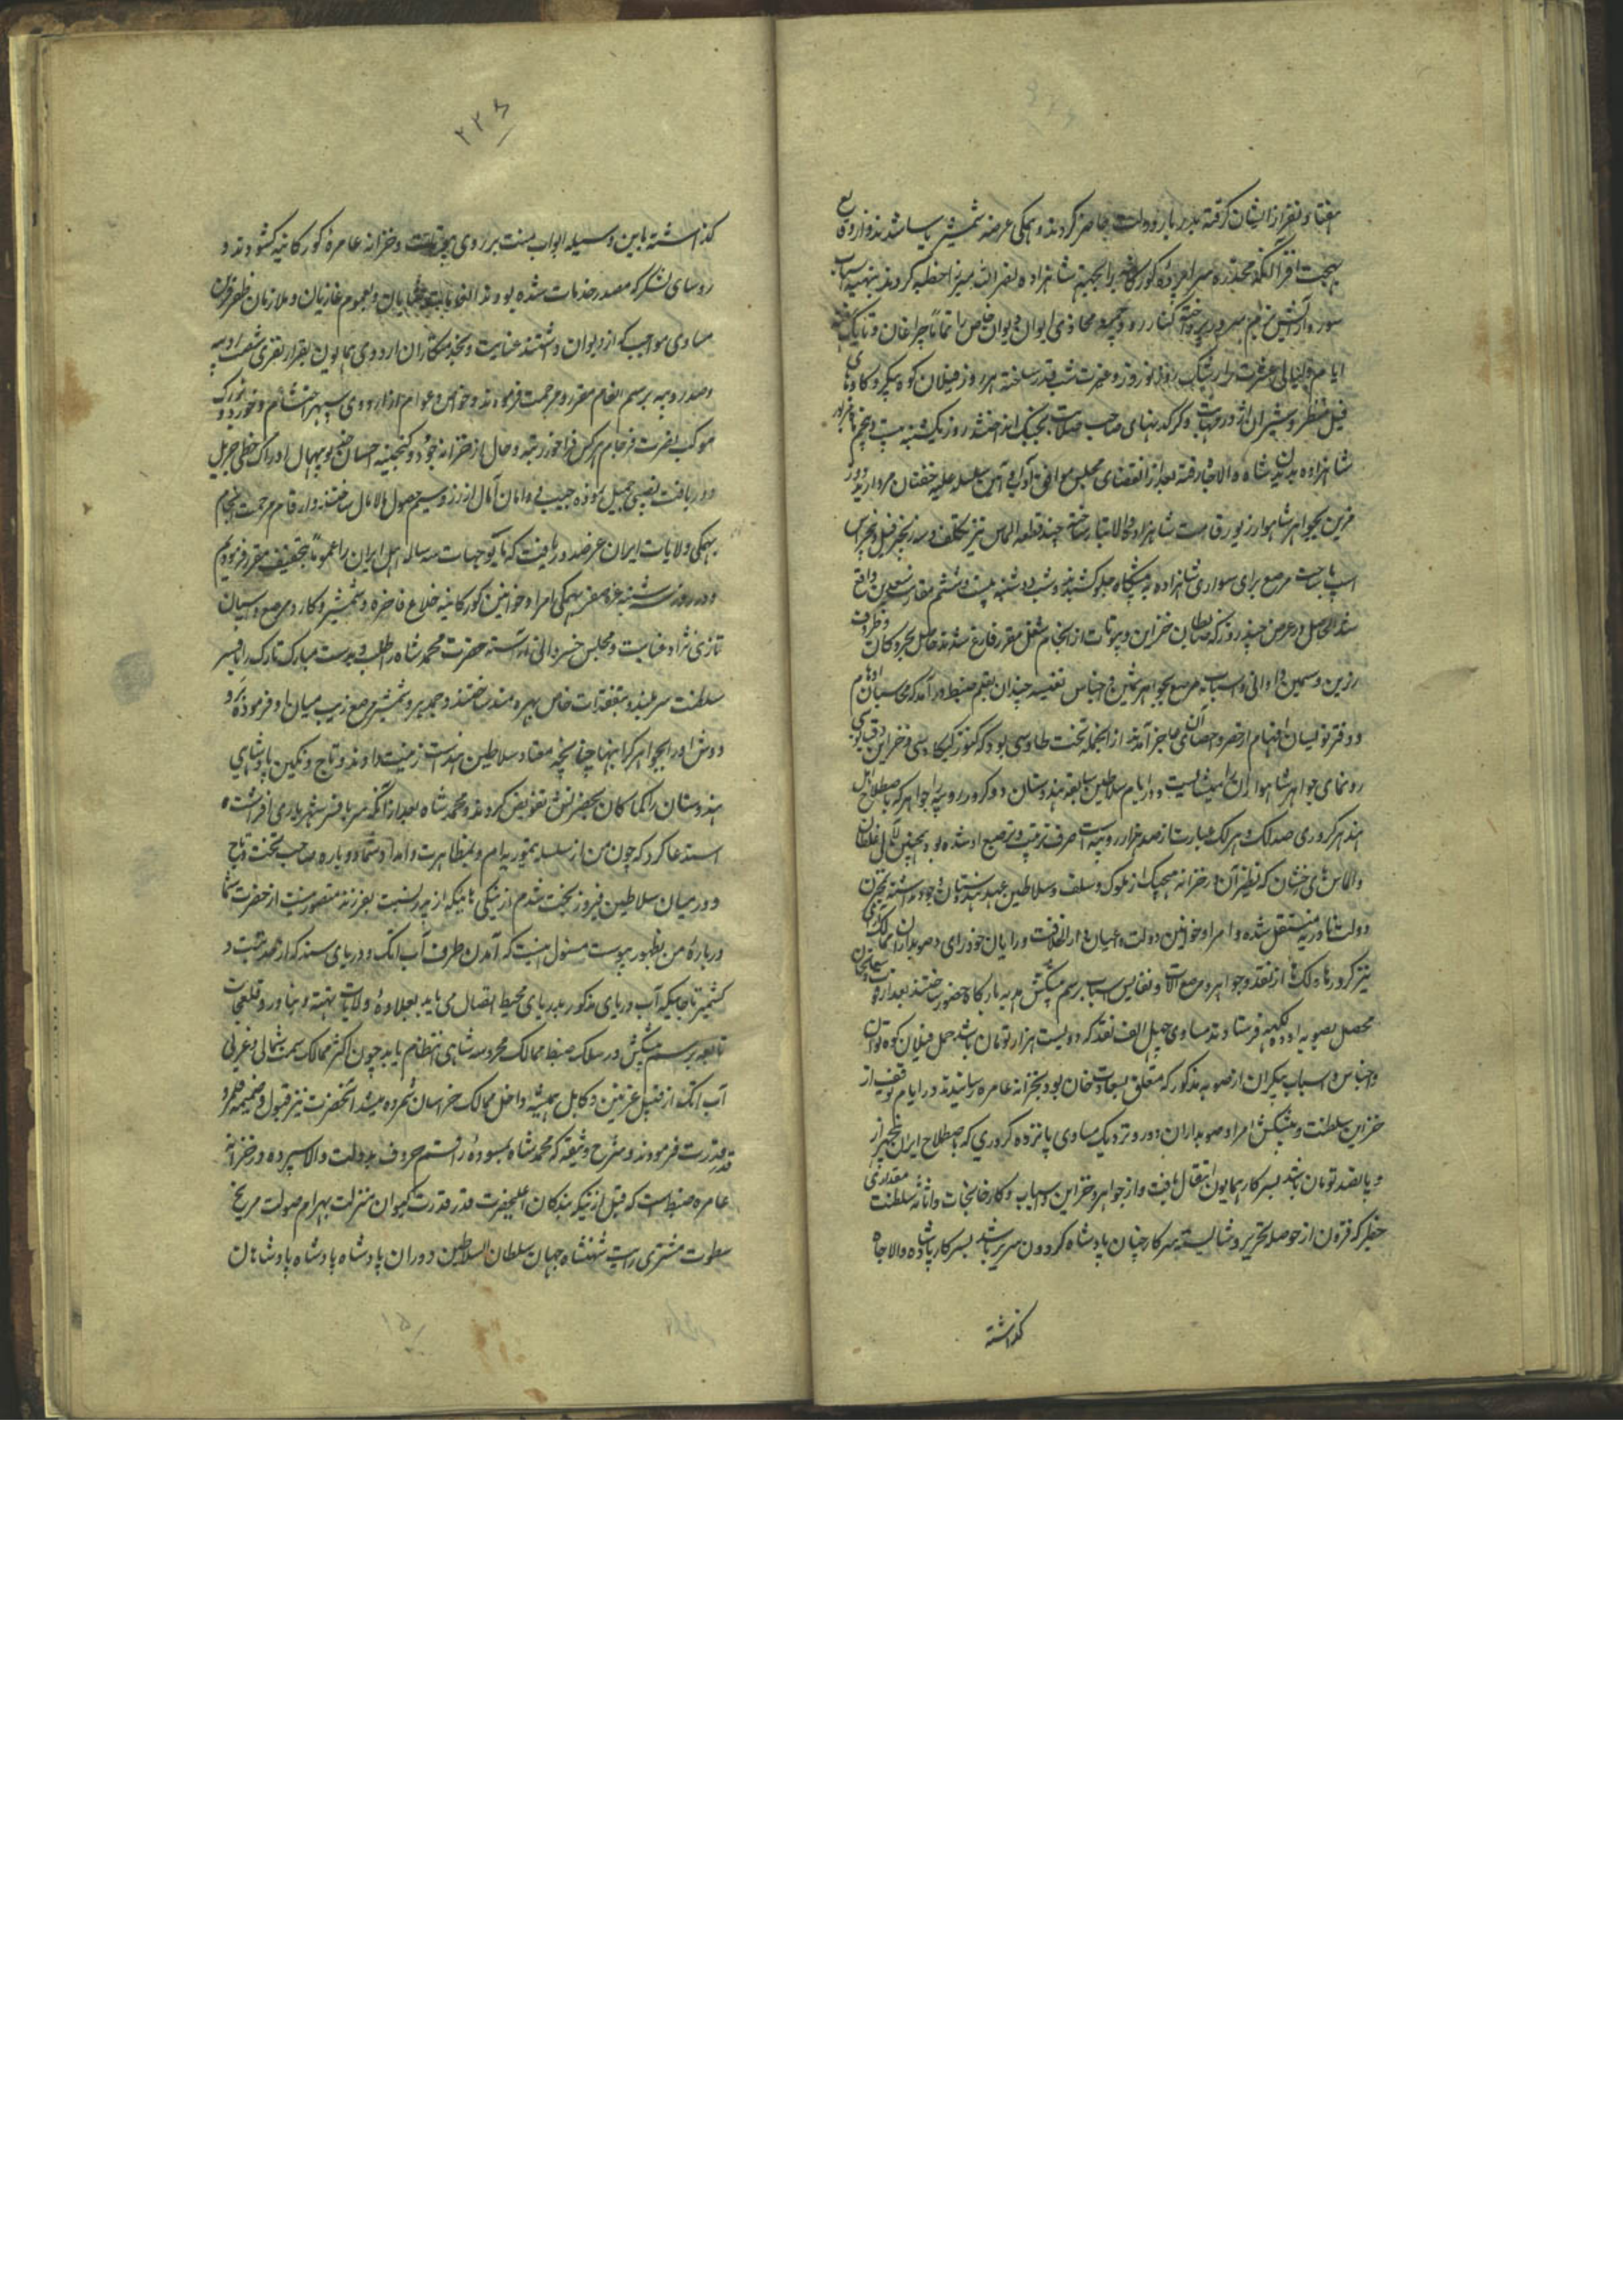 هفتاد نفر از ایشان گرفته بدربار دولت حاضر کردند و همکی عرضه شمشیر یاسا شدند و از وقایع
بهجت افزا آنکه مخدره سراپرده کورکانیه را بجهة شاهزاده نصرالله میرزا خطبه کردند بتهیه اسباب
سور و پرداخته کنار رودخانه محاذی ایوان دیوان خاص را تماماً چراغان و تا یک
ایام و لیالی عشرت را رشک روز نوروز و غیرت شب قدر ساخته هر روز فیلان کوه پیکر و کاوهای
فیل منظر و شیران اژدر مهابت و کرکدنهای صاحب صلابت بجنک انداختند روز یکشنبه بیست و پنجم
شاهزاده بدیدن شاه والاجاه رفته بعد از انقضای مجلس موافق آداب آن سلسله علیه خفتان مروارید دوز
مزین بجواهر شاهوار زیور قامت شاهزاده والاتبار ساخته چند قطعه الماس نیز تکلف و سه زنجیر فیل و پنج راس
اسب با ساخت مرصع برای سواری شاهزاده به پیشکاه جلو کشیدند و شب دوشنبه بیست و ششم مقارنه سعدین واقع
شد الحاصل در عرض چند روز که ضابطان خزاین و بیوتات از انجام شغل مقرر فارغ شدند حاصل بحر و کان و ظروف
زرین و سیمین و اوانی و اسباب مرصع بجواهر ثمین و اجناس نفیسه چندان بقلم ضبط در آمد که محاسبان اوهام
و دفتر نویسان افهام از حصر و احصای آن عاجز آمدند از انجمله تخت طاوسی بود که کنوز کیکاوسی و خزاین دقیانوسی
رونمای جواهر شاهوار آن را نمیشایست و در ایام سلاطین سابقه هندوستان دو کرور روپیه جواهر که باصطلاح اهل
هند هر کروری صد لک و هر لک عبارت از صد هزار روپیه است صرف ترتیب و ترصیع او شده بود همچنین لآلی غلطان
و الماس های رخشان که نظیر آن در خزانه هیچیک از ملوک سلف و سلاطین عهد هندوستان وجود نداشته بخزاین
دولت نادریه منتقل شده و امرا و خوانین دولت و اعیان دار الخلافت و رایان خودرای و صوبداران ممالک آرای
نیز کرورها و لک ها از نقد و جواهر و مرصع آلات و نفایس اسباب برسم پیشکش هدیه بارکاه حضور ساختند بعد از وفات سعادتخان
محصل بصوبه اوده و لکهنو فرستادند مساوی چهل الف نقد که دویست هزار تومان باشد حمل فیلان کوه توان
و اجناس و اسباب بیکران از صوبه مذکور که متعلق بسعادت خان بود بخزانه عامره رسانیدند در ایام توقف از
خزاین سلطنت و پیشکش امرا و صوبداران دور و نزدیک مساوی پانزده کروری که باصطلاح ایران هر
و پانصد تومان باشد بسرکار همایون انتقال یافت و از جواهر و خزاین و اسباب و کارخانجات و اثاثه سلطنت مقداری
خطیر که فزون از حوصله تحریر و شایسته سرکار چنان پادشاه کردون سریر باشد بسرکار پادشاه والاجاه
کذاشته
۲۲۶
کذاشته باین وسیله ابواب منت بر روی و خزانه عامره کورکانیه کشودند و
روسای لشکر که مصدر خدمات شده بودند انعامات نمایان و بعموم غازیان و ملازمان ظفر قران
مساوی مواجب که از دیوان داشتند عنایت و بخدمتکاران اردوی همایون بقرار نفری شصت روپیه
و صد روپیه برسم انعام مقرر و مرحمت فرمودند و خواص و عوام از اردوی سپهر احتشام و خورد و بزرک
موکب نصرت فرجام هر کس فراخور رتبه و حال از خزانه جود و کنجینه احسان خدیو بیهمال ادراک حظی جزیل
و دریافت نصیبی جمیل نموده جیب و دامان آمال از زر و سیم حصول مالامال ساختند و ارقام مرحمت انجام
بهمکی ولایات ایران عز صدور یافت که مالوجهات سه ساله اهل ایران را عموماً بتخفیف مقرر فرمودیم
و در روز سه شنبه غره صفر بهمکی امرا و خوانین کورکانیه خلاع فاخره و شمشیر و کارد مرصع و اسبان
تازی نژاد عنایت و مجلس خسروانی آراسته حضرت محمد شاه را طلب و بدست مبارک تارک را بافسر
سلطنت سربلند و بتفقدات خاص بهره مند ساختند و جمدهر و شمشیر مرصع زیب میان او فرموده بر و
دوش او را بجواهر کرانبها چنانچه معتاد سلاطین هند است زینت دادند و تاج و نکین پادشاهی
هندوستان را کماکان بحضرتش تفویض کردند و محمد شاه بعد از آنکه سر بافسر شهریاری افراشت
استدعا کرد که چون من از سلسله تیموریه ام و بمظاهرت و امداد شما دوباره صاحب تخت و تاج
و در میان سلاطین فیروز بخت شدم از نیکی هائیکه از پدر نسبت بفرزند متصور نیست از حضرت شما
درباره من بظهور پیوست مسئول اینست که آمدن طرف آب اتک و دریای سند که از حد تبت و
کشمیر تا جائیکه آب دریای مذکور بدریای محیط اتصال می یابد بعلاوه ولایات تهته و بنادر و قلعجات
تابعه برسم پیشکش در سلک ضبط ممالک محروسه شاهی انتظام یابد چون اکثر ممالک سمت شمالی و غربی
آب اتک از قبیل غزنین و کابل همیشه داخل ممالک خراسان شمرده میشد آنحضرت نیز قبول و ضمیمه قلمرو
قدر قدرت فرمودند و شرح وثیقه که محمد شاه بمسوده راقم حروف بدولت والا سپرده و در خزانه
عامره ضبط است که قبل ازینکه بندکان اعلیحضرت قدر قدرت کیوان منزلت بهرام صولت مریخ
سطوت مشتری رایت شهنشاه جهان سلطان السلاطین دوران پادشاه پادشاهان
۱۵